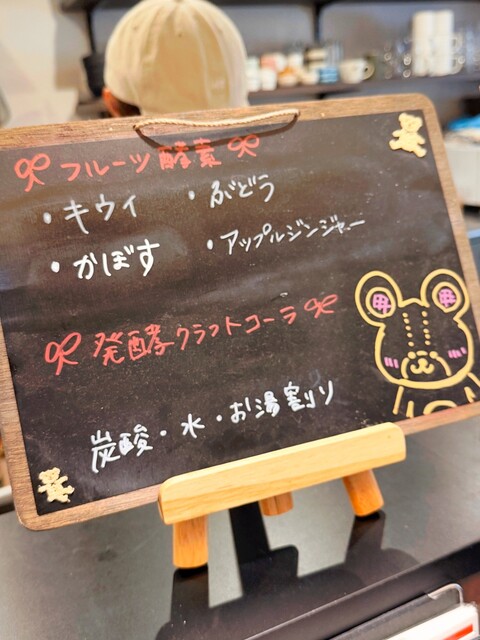 フルーツ酵素
・キウイ ・ぶどう
・かぼす ・アップルジンジャー
発酵クラフトコーラ
炭酸・水・お湯割り